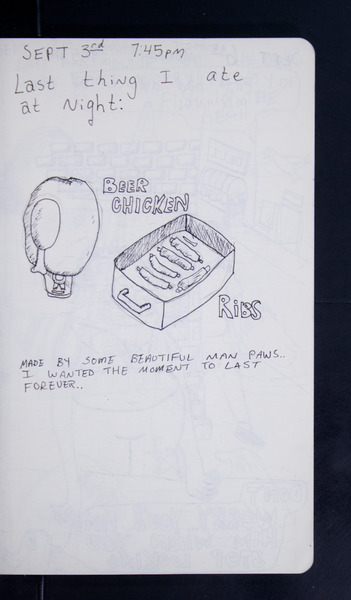 SEPT 3rd 7:45pm
Last thing I ate
at Night:
BEER
CHICKEN
RiBS
MADE BY SOME BEAUTIFUL MAN PAWS..
I WANTED THE MOMENT TO LAST
FOREVER..